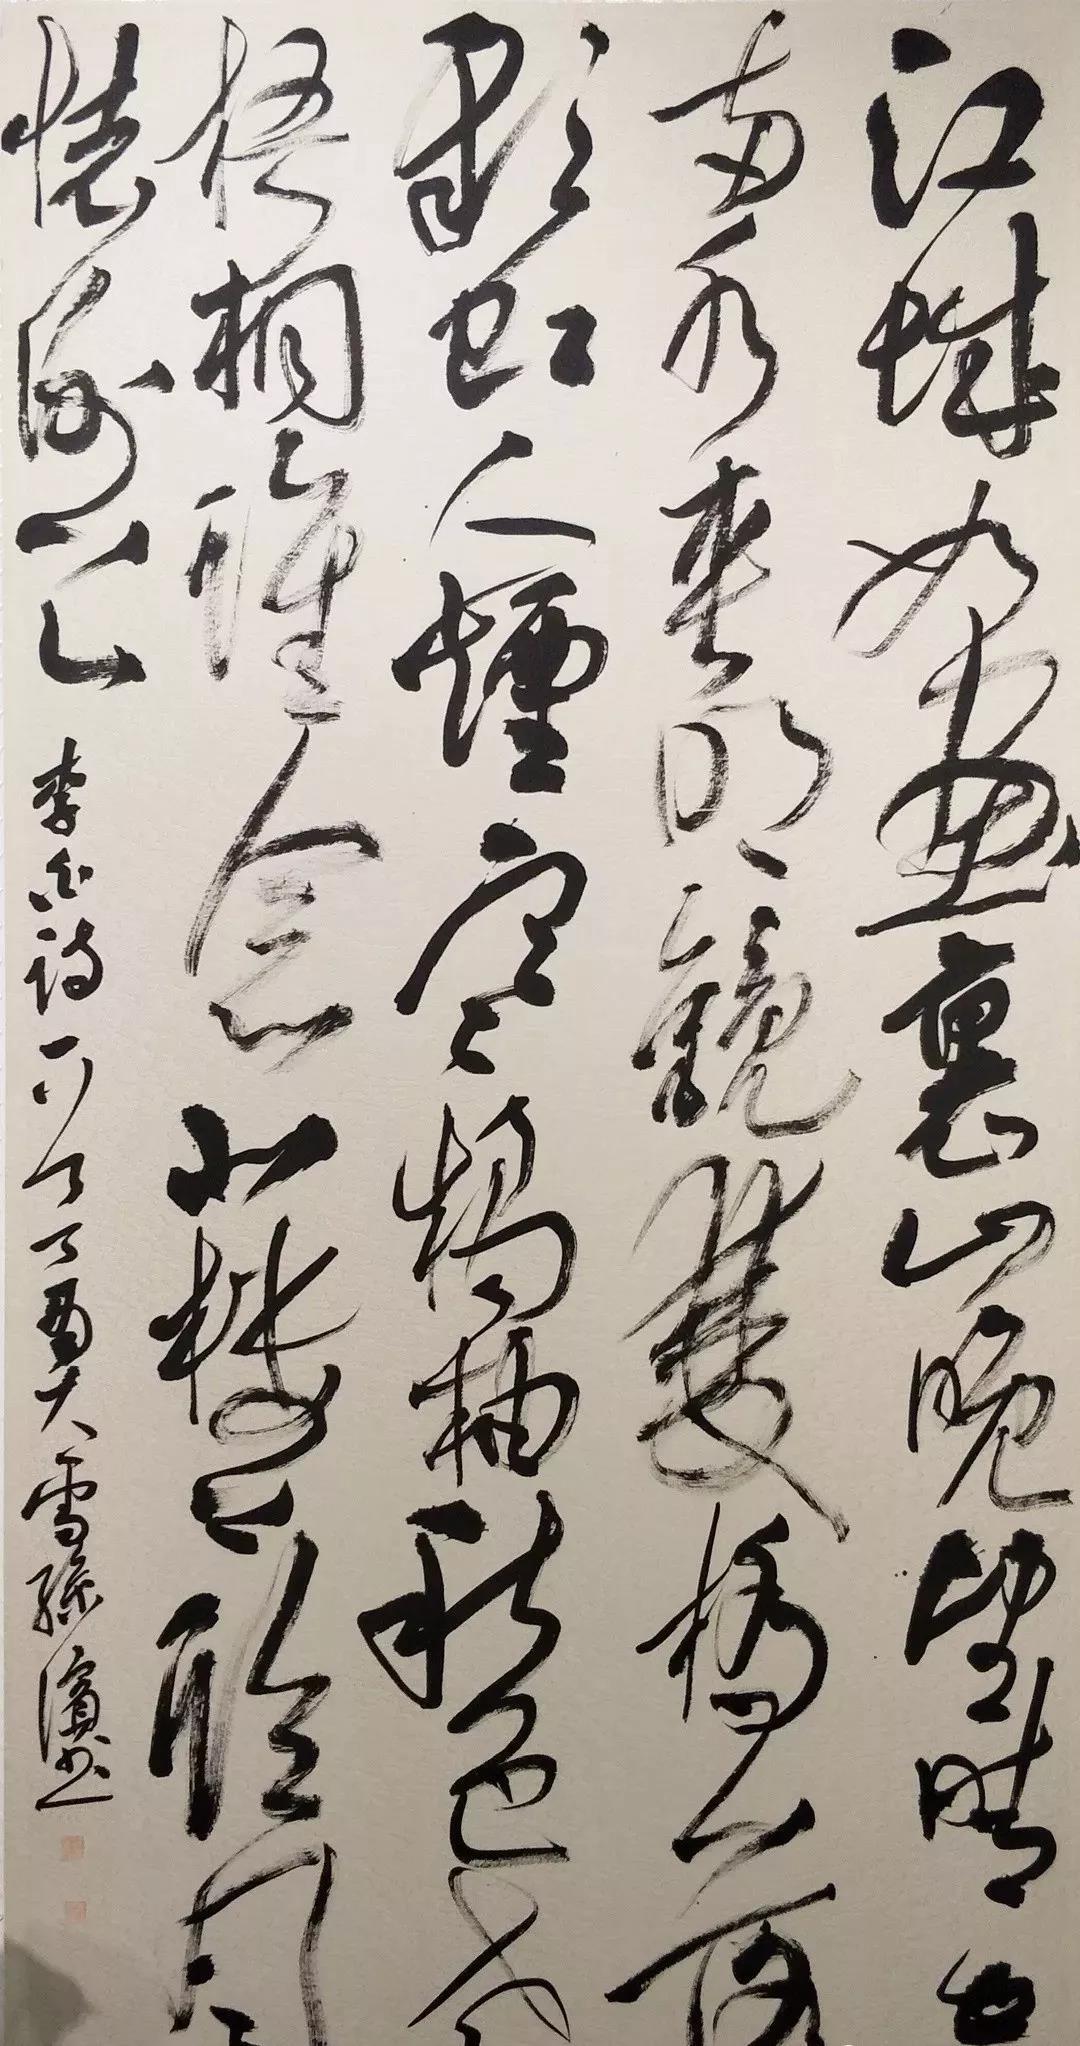 江城如畫裏山晚望晴空
兩水夾明鏡雙橋落
彩虹人煙寒橘柚秋色老
梧桐誰念北樓上臨風
懷謝公 李白詩一首丁酉大雪孫濱書